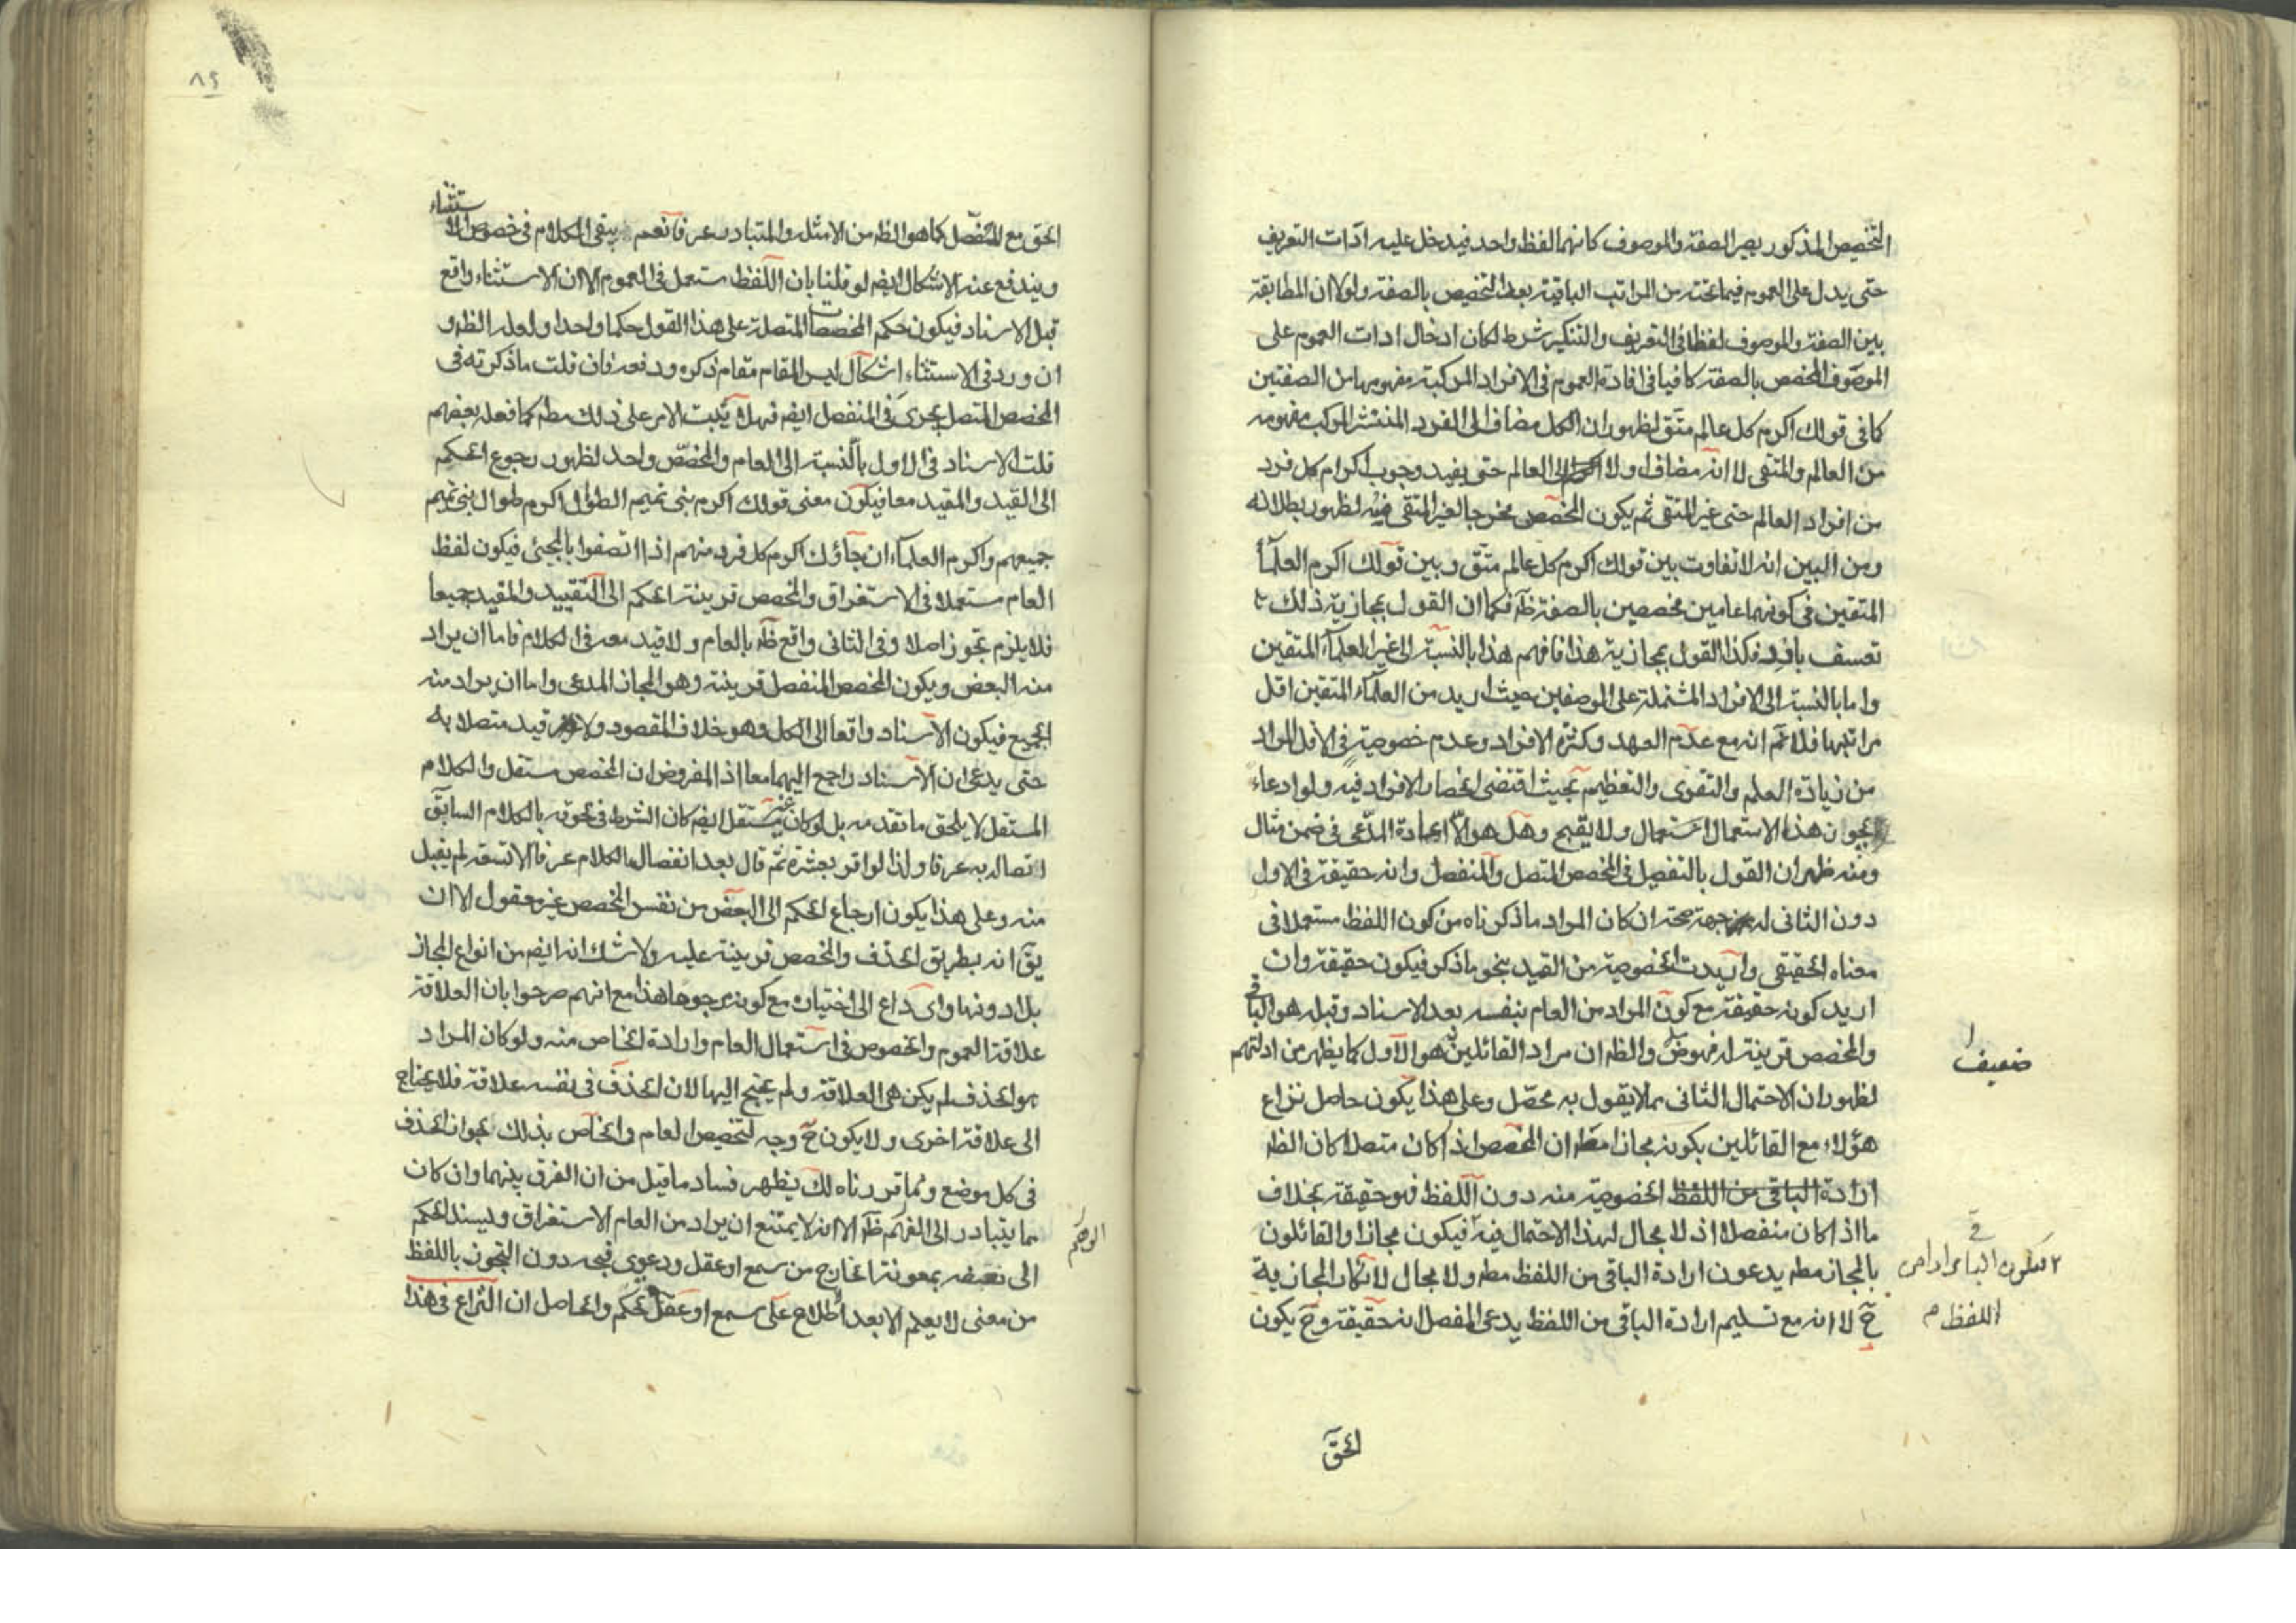 التخصيص المذكور يصير الصفة والموصوف كانهما لفظ واحد فيدخل عليه ادّات التعريف
حتى يدل على العموم فيما تحته من المراتب الباقية بعد التخصيص بالصفة ولولا ان المطابقة
بين الصفة والموصوف لفظا فى التعريف والتنكير شرط لكان ادخال ادات العموم على
الموصوف المخصص بالصفة كافيا فى افادة العموم فى الافراد المركبة مفهومها من الصفتين
كما فى قولك اكرم كل عالم متق لظهور ان الكل مضاف الى الفرد المنتشر المركب مفهومه
من العالم والمتقى لا انه مضاف اولا الى العالم حتى يفيد وجوب اكرام كل فرد
من افراد العالم حتى غير المتقى ثم يكون المخصص مخرجا لغير المتقى منه لظهور بطلانه
ومن البين انه لا تفاوت بين قولك اكرم كل عالم متق وبين قولك اكرم العلمآء
المتقين فى كونهما عامين مخصصين بالصفة ظ فكما ان القول بمجازية ذلك
تعسف بارد فكذا القول بمجازية هذا فافهم هذا بالنسبة الى غير العلمآء المتقين
واما بالنسبة الى الافراد المشتملة على الوصفين حيث اريد من العلمآء المتقين اقل
مراتبها فلا ثم انه مع عدم العهد وكثرة الافراد وعدم خصوصية فى الاقل المراد
من زيادة العلم والتقوى والتعظيم بحيث اقتضى انحصار الافراد فيه ولو ادعاء
يجوز هذا الاستعمال ولا يقبح وهل هو الا اعادة المدّعى فى ضمن مثال
ومنه ظهر ان القول بالتفصيل فى المخصص المتصل والمنفصل وانه حقيقة فى الاول
دون الثانى له جهة صحة ان كان المراد ما ذكرناه من كون اللفظ مستعملا فى
معناه الحقيقى واريدت الخصوصية من القيد بنحو ما ذكر فيكون حقيقة وان
اريد كونه حقيقة مع كون المراد من العام بنفسه بعد الاسناد وقبله هو الباقى
والمخصص قرينة له فهو ضعيف والظ ان مراد القائلين هو الاول كما يظهر من ادلتهم
ضعيف
لظهور ان الاحتمال الثانى مما لا يقول به محصّل وعلى هذا يكون حاصل نزاع
هؤلاء مع القائلين بكونه مجازا مط ان المخصص اذا كان متصلا كان الظ
ارادة الباقى من اللفظ الخصوصية منه دون اللفظ فهو حقيقة بخلاف
ما اذا كان منفصلا اذ لا مجال لهذا الاحتمال فيه فيكون مجازا والقائلون
بالمجاز مط يدعون ارادة الباقى من اللفظ مط ولا مجال لانكار المجازية
فيكون الباقى مرادا من
اللفظ م
ح لا انه مع تسليم ارادة الباقى من اللفظ يدعى المفصل انه حقيقة وح يكون
الحق
٨٩
الحق مع المفصل كما هو الظ من الامثلة والمتبادر عرفا نعم يبقى الكلام فى خصوص الاستثناء
ويندفع عنه الاشكال ايض لو قلنا بان اللفظ مستعمل فى العموم الا ان الاستثناء واقع
قبل الاسناد فيكون حكم المخصصات المتصلة على هذا القول حكما واحدا ولعله الظ و
ان ورد فى الاستثناء اشكال ليس المقام مقام ذكره ودفعه فان قلت ما ذكرته فى
المخصص المتصل يجرى فى المنفصل ايض فهلا يثبت الامر على ذلك مط كما فعله بعضهم
قلت الاسناد فى الاول بالنسبة الى العام والمخصّص واحد لظهور رجوع الحكم
الى القيد والمقيد معا فيكون معنى قولك اكرم بنى تميم الطوال اكرم طوال بنى تميم
جميعهم واكرم العلمآء ان جآؤك اكرم كل فرد منهم اذا اتصفوا بالمجيئ فيكون لفظ
العام مستعملا فى الاستغراق والمخصص قرينة الحكم الى التقييد والمقيد جميعا
فلا يلزم تجوز اصلا وفى الثانى واقع ظ بالعام ولا قيد معه فى الكلام فاما ان يراد
منه البعض ويكون المخصص المنفصل قرينة وهو المجاز المدعى واما ان يراد منه
الجميع فيكون الاسناد واقعا الى الكل وهو خلاف المقصود ولا قيد متصلا به
حتى يدعى ان الاسناد راجع اليهما معا اذ المفروض ان المخصص مستقل والكلام
المستقل لا يلحق ما تقدمه بل لو كان غير مستقل ايض كان الشرط فى لحوقه بالكلام السابق
اتصاله به عرفا ولذا لو اقر بعشرة ثم قال بعد انفصال الكلام عرفا الا تسعة لم يقبل
منه وعلى هذا يكون ارجاع الحكم الى البعض من نفس المخصص غير معقول الا ان
يق انه بطريق الحذف والمخصص قرينة عليه ولا شك انه ايض من انواع المجاز
بل ادونها واى داع الى اختياره مع كونه مرجوحا هذا مع انهم صرحوا بان العلاقة
علاقة العموم والخصوص فى استعمال العام وارادة الخاص منه ولو كان المراد
هو الحذف لم يكن هى العلاقة ولم يحتج اليها لان الحذف فى نفسه علاقة فلا يحتاج
الى علاقة اخرى ولا يكون ح وجه لتخصيص العام والخاص بذلك لجواز الحذف
فى كل موضع ومما قررناه لك يظهر فساد ما قيل من ان الفرق بينهما وان كان
مما يتبادر الى الفهم ظ الا انه لا يمتنع ان يراد من العام الاستغراق ويسند الحكم
الوهم
الى بعضه بمعونة الخارج من سمع او عقل ودعوى قبحه دون التجوز باللفظ
من معنى لا يعلم الا بعد اطلاع على سمع او عقل تحكم والحاصل ان النزاع فى هذا